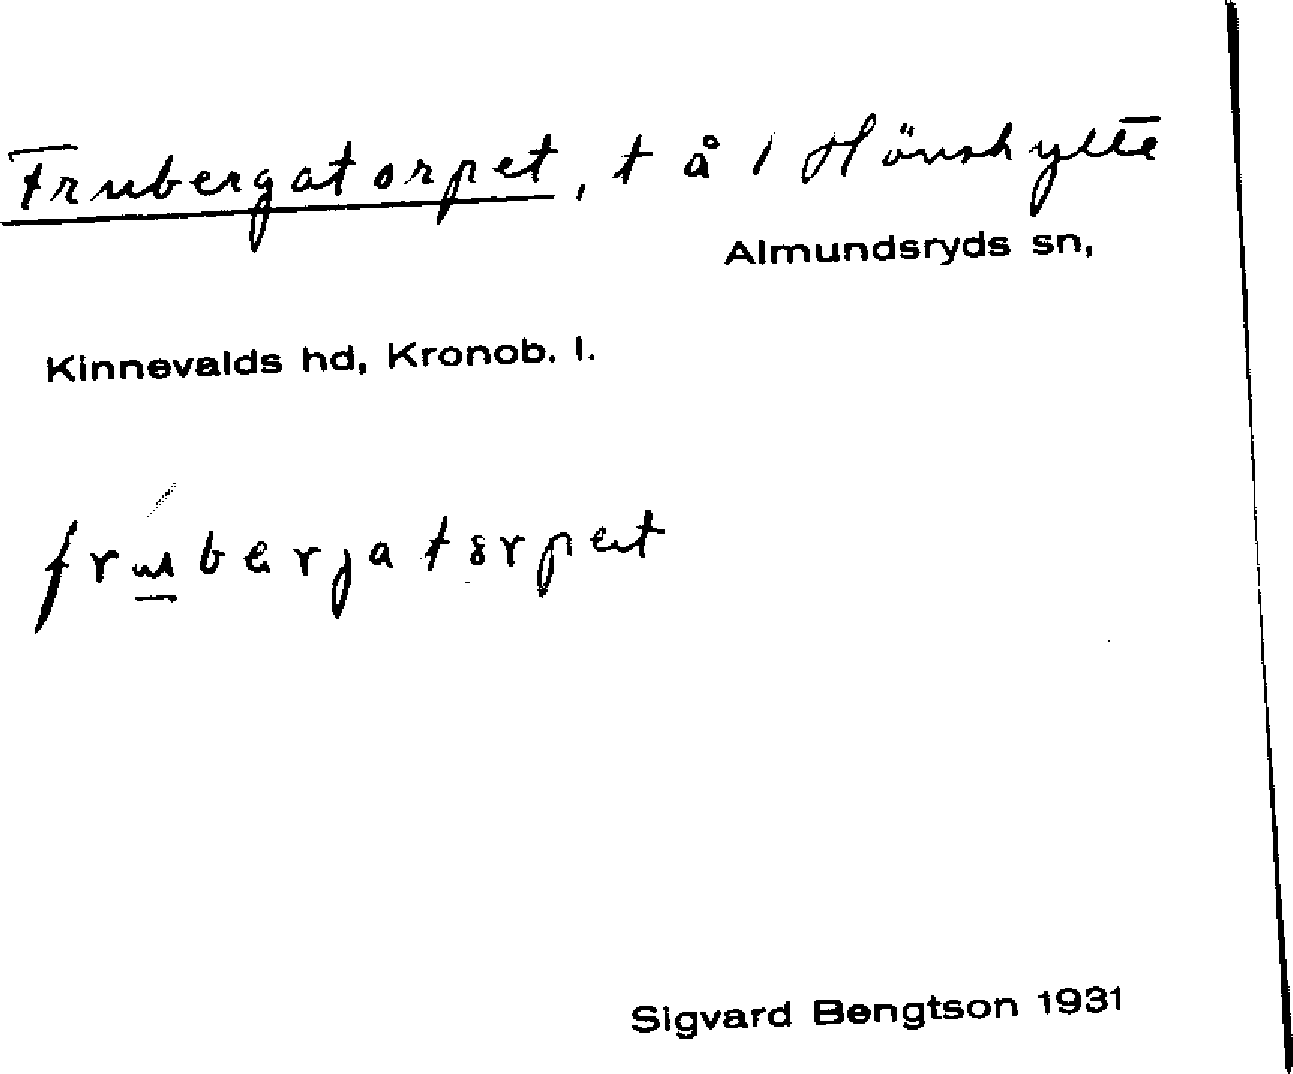 Frubergatorpet, t å / Hönshylte
Almundsryds sn,
Kinnevalds hd, Kronob. l.
frubergatorpet
Sigvard Bengtson 1931